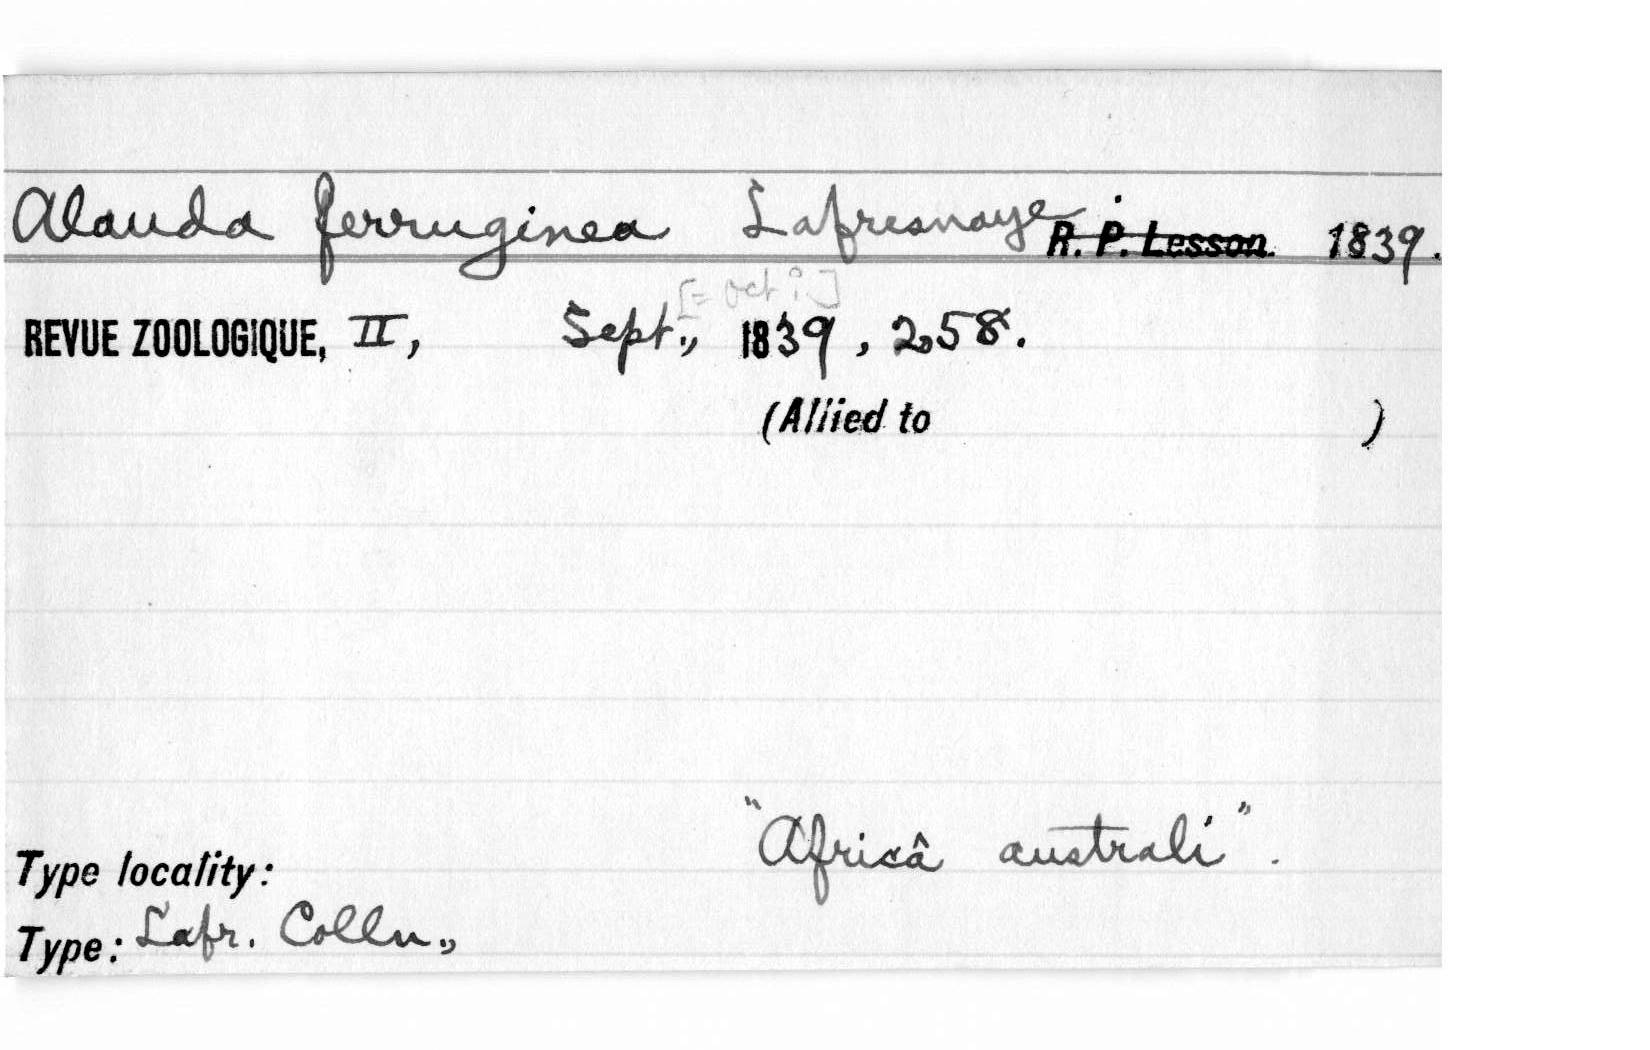 Alauda ferruginea Lafresnaye. R. P. Lesson. 1839.
[= Oct?]
REVUE ZOOLOGIQUE, II, Sept., 1839, 258.
(Allied to )
"Africâ australi".
Type locality:
Type: Lafr. Colln.,